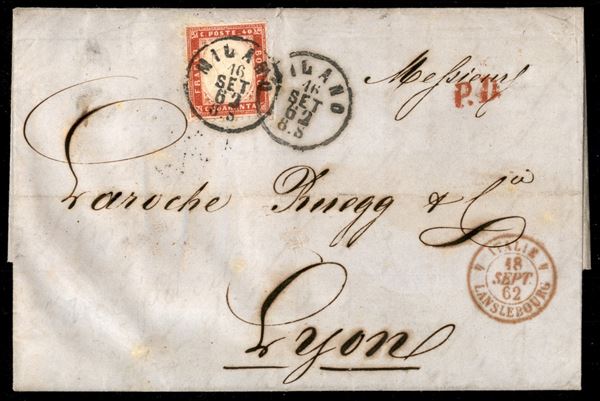 C. POSTE 40
FRANCO
BOLLO
C. QUARANTA
MILANO
16
SET
62
8 S
MILANO
16
SET
62
8 S
Messieurs
P.D.
Laroche Ruegg & Cia
Lyon
4 ITALIE 4
18
SEPT.
62
LANSLEBOURG